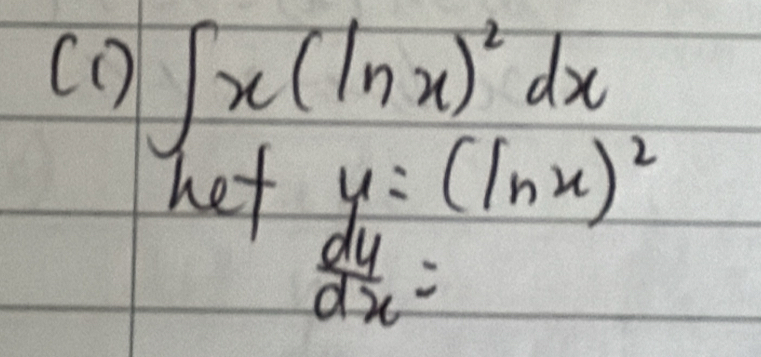 (i) ∫x(ln x)² dx
Let u = (ln x)²
du/dx =